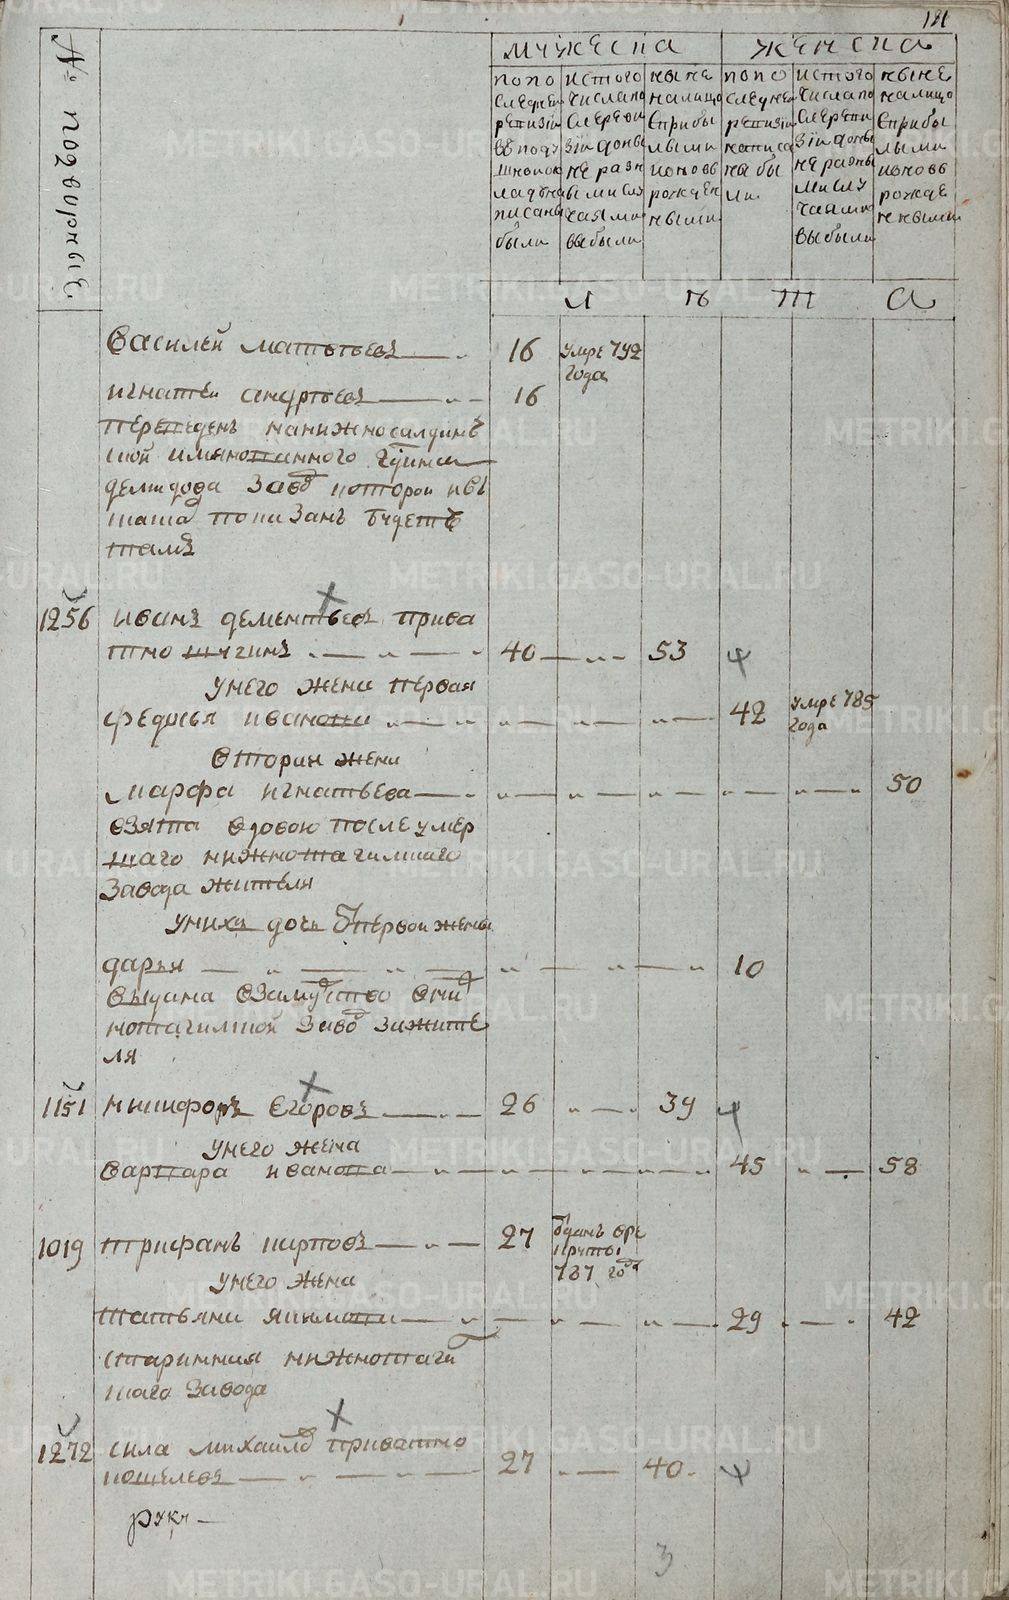 181
№ подворные.
мужеска
женска
по последней ревизии в подушном окладе написаны были
ис того числа по сле ревизии разными случаями выбыли
ныне налицо с прибылыми и вновь рожденными
по последней ревизии написаны были
ис того числа после ревизии разными случаями выбыли
ныне налицо с прибылыми и вновь рожденными
л ѣ т а
василей матвѣевъ 16 умре 792
года
игнатей 16
переведенъ на нижносалдинъ
ской имянованного
демидова завод которой
показанъ будетъ
тамъ
1256 иванъ дементьевъ приватно
шугинъ 40 53
у него жена первая
федосья иванова 42 умре 785
года
вторая жена
марфа игнатьева 50
взята вдовою после умер
шаго нижнотагилскаго
завода жителя
у нихъ дочь от первои жены
дарья 10
выдана в замужство в ниж
нотагилской завод за жите
ля
1151 никифоръ егоровъ 26 39
у него жена
варвара иванова 45 58
1019 трифанъ карповъ 27 отданъ в ре
круты
787 году
у него жена
татьяна якимова 29 42
старинная нижнотагил
скаго завода
1272 сила михайлов приватно
кошелевъ 27 40
рука
3
METRIKI.GASO-URAL.RU